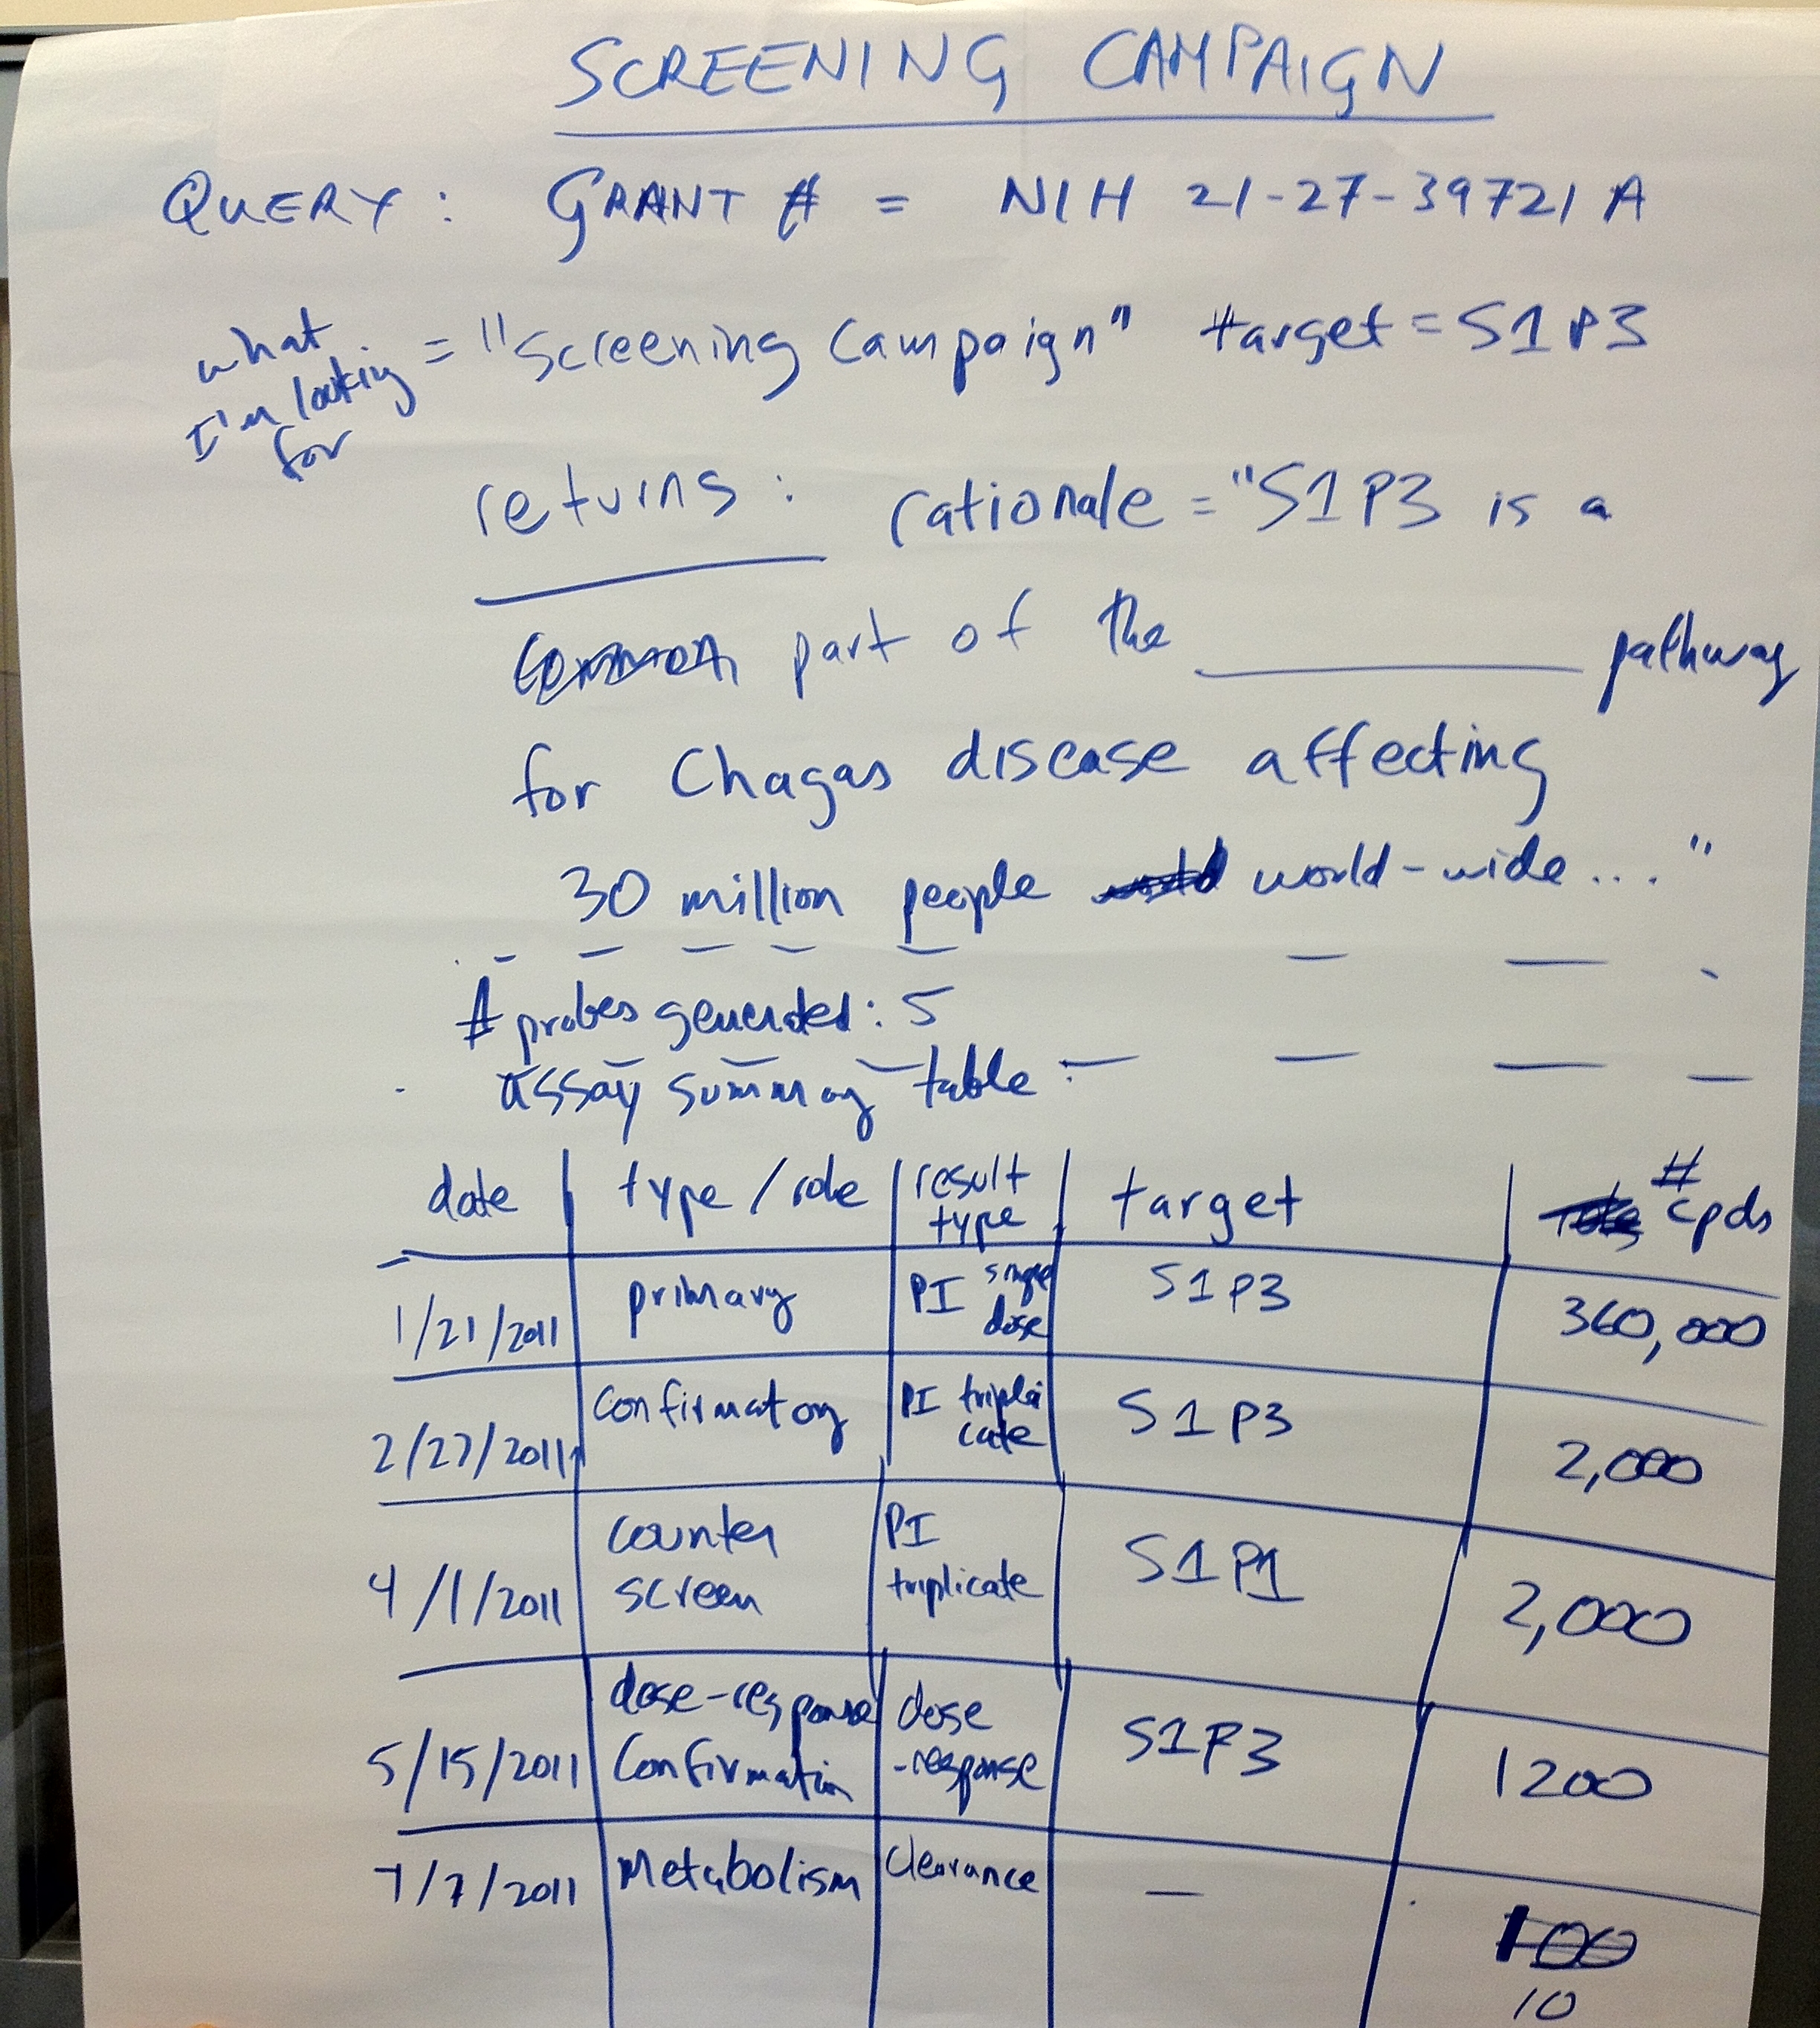 SCREENING CAMPAIGN
QUERY: GRANT # = NIH 21-27-39721A
what I'm looking for = "Screening Campaign" target = S1P3
returns: rationale = "S1P3 is a
common part of the ________ pathway
for Chagas disease affecting
30 million people world world-wide..."
# probes generated: 5
assay summary table:
date | type/role | result type | target | # cpds
1/21/2011 | primary | PI single dose | S1P3 | 360,000
2/27/2011 | confirmatory | PI triplicate | S1P3 | 2,000
4/1/2011 | counter screen | PI triplicate | S1P1 | 2,000
5/15/2011 | dose-response Confirmation | dose-response | S1P3 | 1200
7/7/2011 | Metabolism | Clearance | — | 100 10